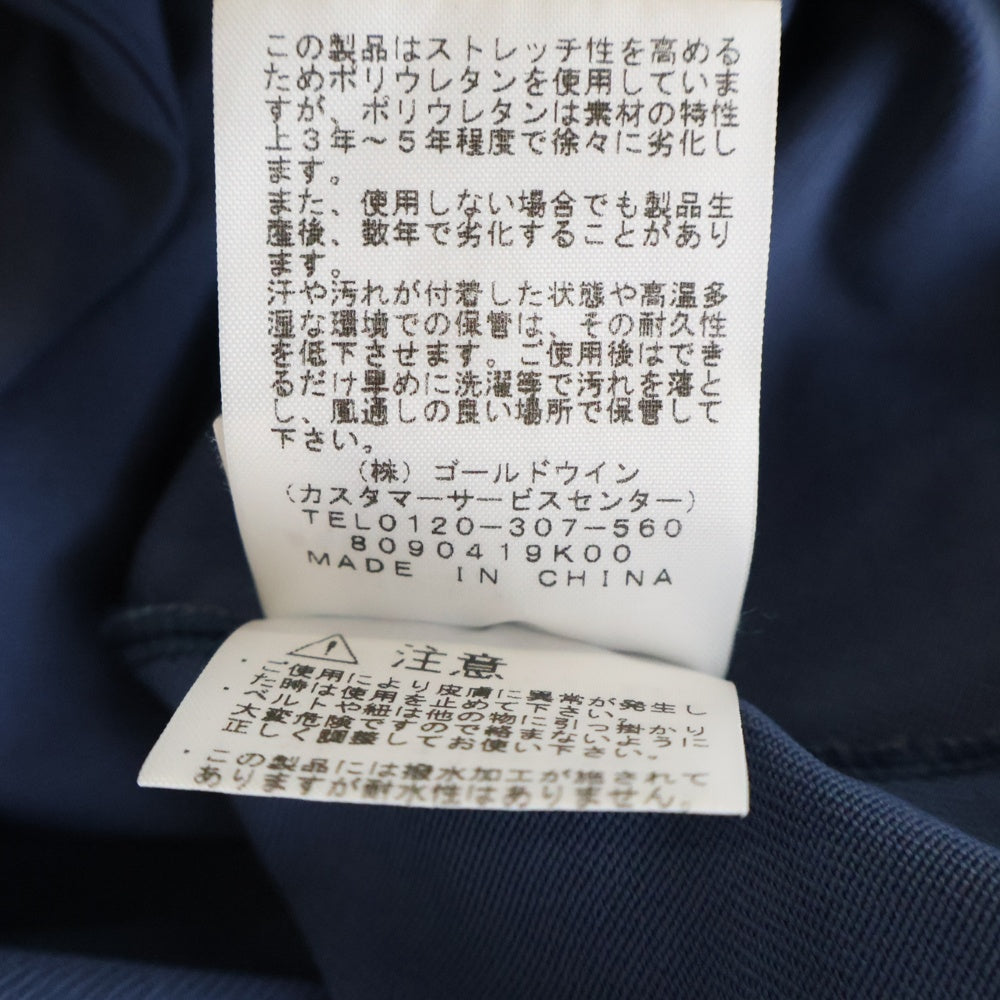 この製品はストレッチ性を高める
ためポリウレタンを使用していま
すが、ポリウレタンは素材の特性
上3年～5年程度で徐々に劣化し
ます。
また、使用しない場合でも製品生
産後、数年で劣化することがあり
ます。
汗や汚れが付着した状態や高温多
湿な環境での保管は、その耐久性
を低下させます。ご使用後はでき
るだけ早めに洗濯等で汚れを落と
し、風通しの良い場所で保管して
下さい。
(株)ゴールドウイン
(カスタマーサービスセンター)
TEL0120-307-560
8090419K00
MADE IN CHINA
注意
・ご使用により皮膚に異常が発生し
た時は使用を止めて下さい。
・ベルトや紐は他の物に引っ掛かり
大変危険ですので絡まないように
正しく調整してお使い下さい。
・この製品には撥水加工が施されて
ありますが耐水性はありません。